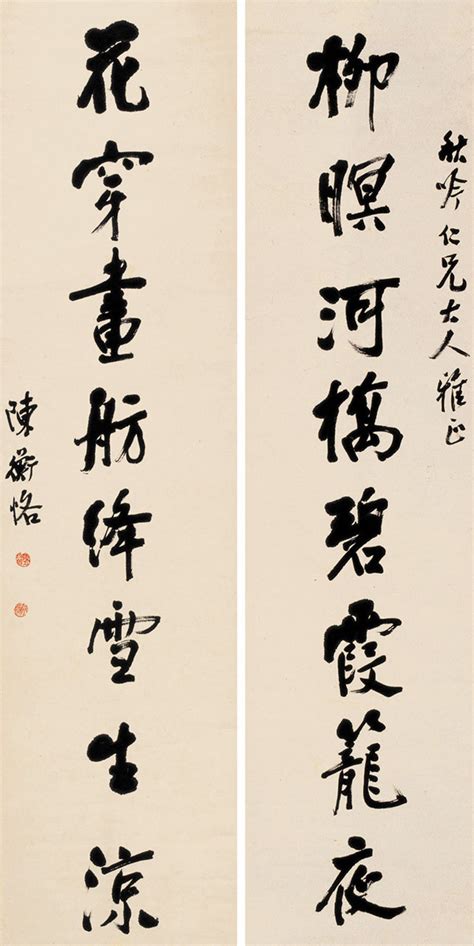 秋吟仁兄大人雅正
柳暝河橋碧霞籠夜
花穿畫舫絳雪生涼
陳衡恪